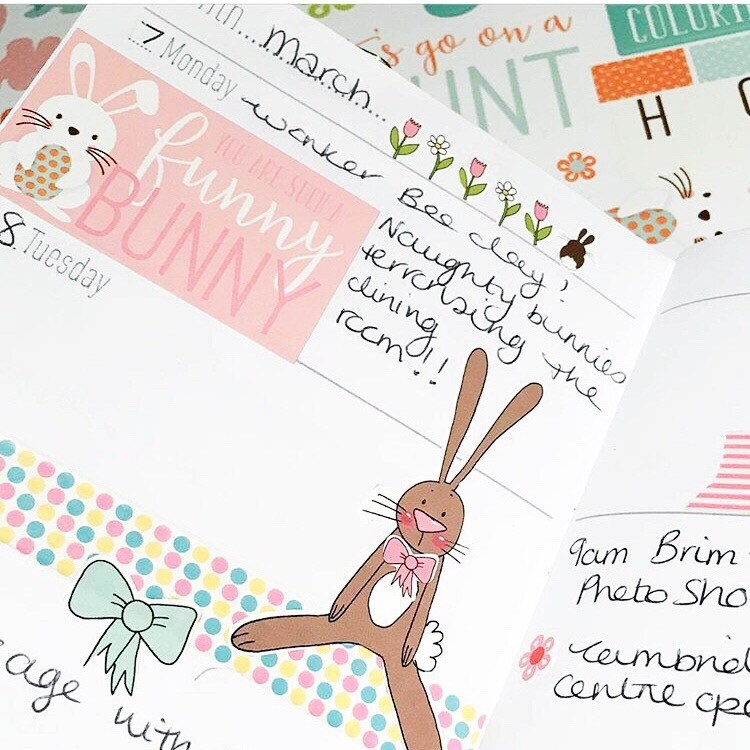 COLORI
's go on a
UNT
H
nth... March...
7 Monday
Worker Bee day!
YOU ARE SUCH A
funny
BUNNY
Naughty bunnies
terrorising the
dining
room!!
8 Tuesday
9am Brim
Photo Sho
centre
age with